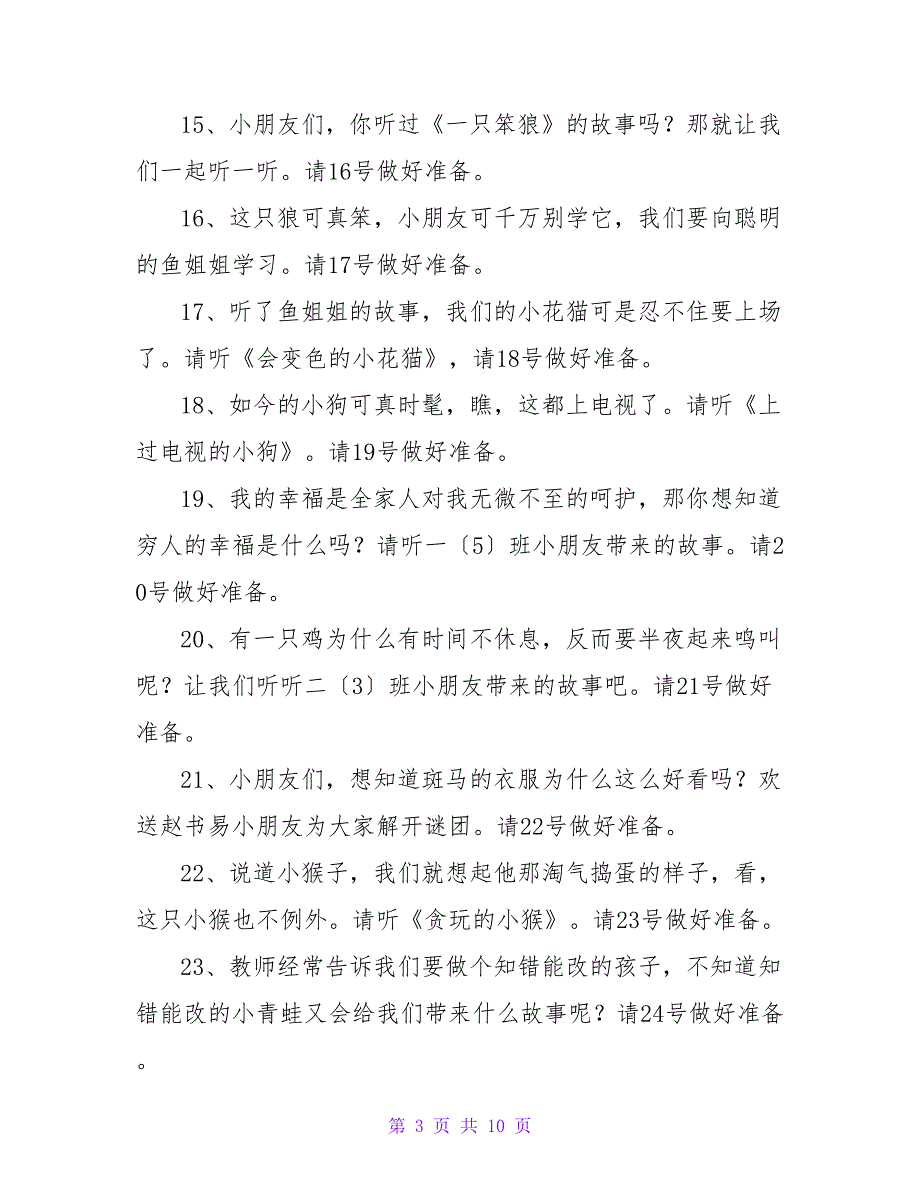 15、小朋友们，你听过《一只笨狼》的故事吗？那就让我
们一起听一听。请16号做好准备。
16、这只狼可真笨，小朋友可千万别学它，我们要向聪明
的鱼姐姐学习。请17号做好准备。
17、听了鱼姐姐的故事，我们的小花猫可是忍不住要上场
了。请听《会变色的小花猫》，请18号做好准备。
18、如今的小狗可真时髦，瞧，这都上电视了。请听《上
过电视的小狗》。请19号做好准备。
19、我的幸福是全家人对我无微不至的呵护，那你想知道
穷人的幸福是什么吗？请听一〔5〕班小朋友带来的故事。请2
0号做好准备。
20、有一只鸡为什么有时间不休息，反而要半夜起来鸣叫
呢？让我们听听二〔3〕班小朋友带来的故事吧。请21号做好
准备。
21、小朋友们，想知道斑马的衣服为什么这么好看吗？欢
送赵书易小朋友为大家解开谜团。请22号做好准备。
22、说道小猴子，我们就想起他那淘气捣蛋的样子，看，
这只小猴也不例外。请听《贪玩的小猴》。请23号做好准备。
23、教师经常告诉我们要做个知错能改的孩子，不知道知
错能改的小青蛙又会给我们带来什么故事呢？请24号做好准备
。
第 3 页 共 10 页